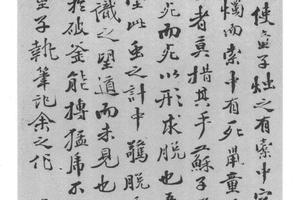 使童子燭之有橐中空
燭而索中有死鼠童
者莫措其手蘇子
死而死以形求脫也
此蟲之計中驚脫
識之望道而未見也
破釜能搏猛虎不
童子執筆記余之作